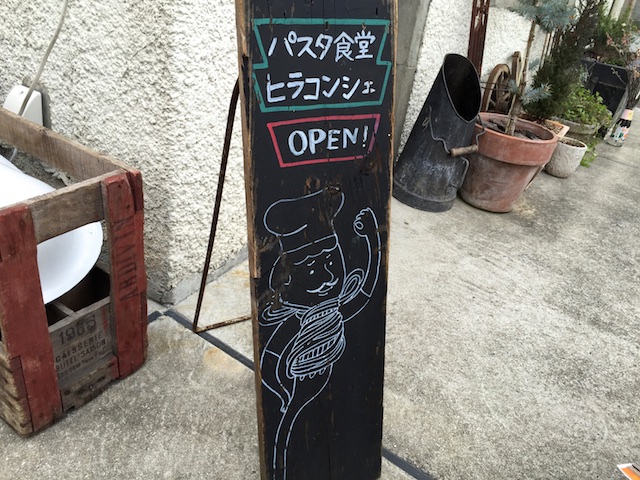 パスタ食堂
ヒラコンシェ
OPEN!
1969